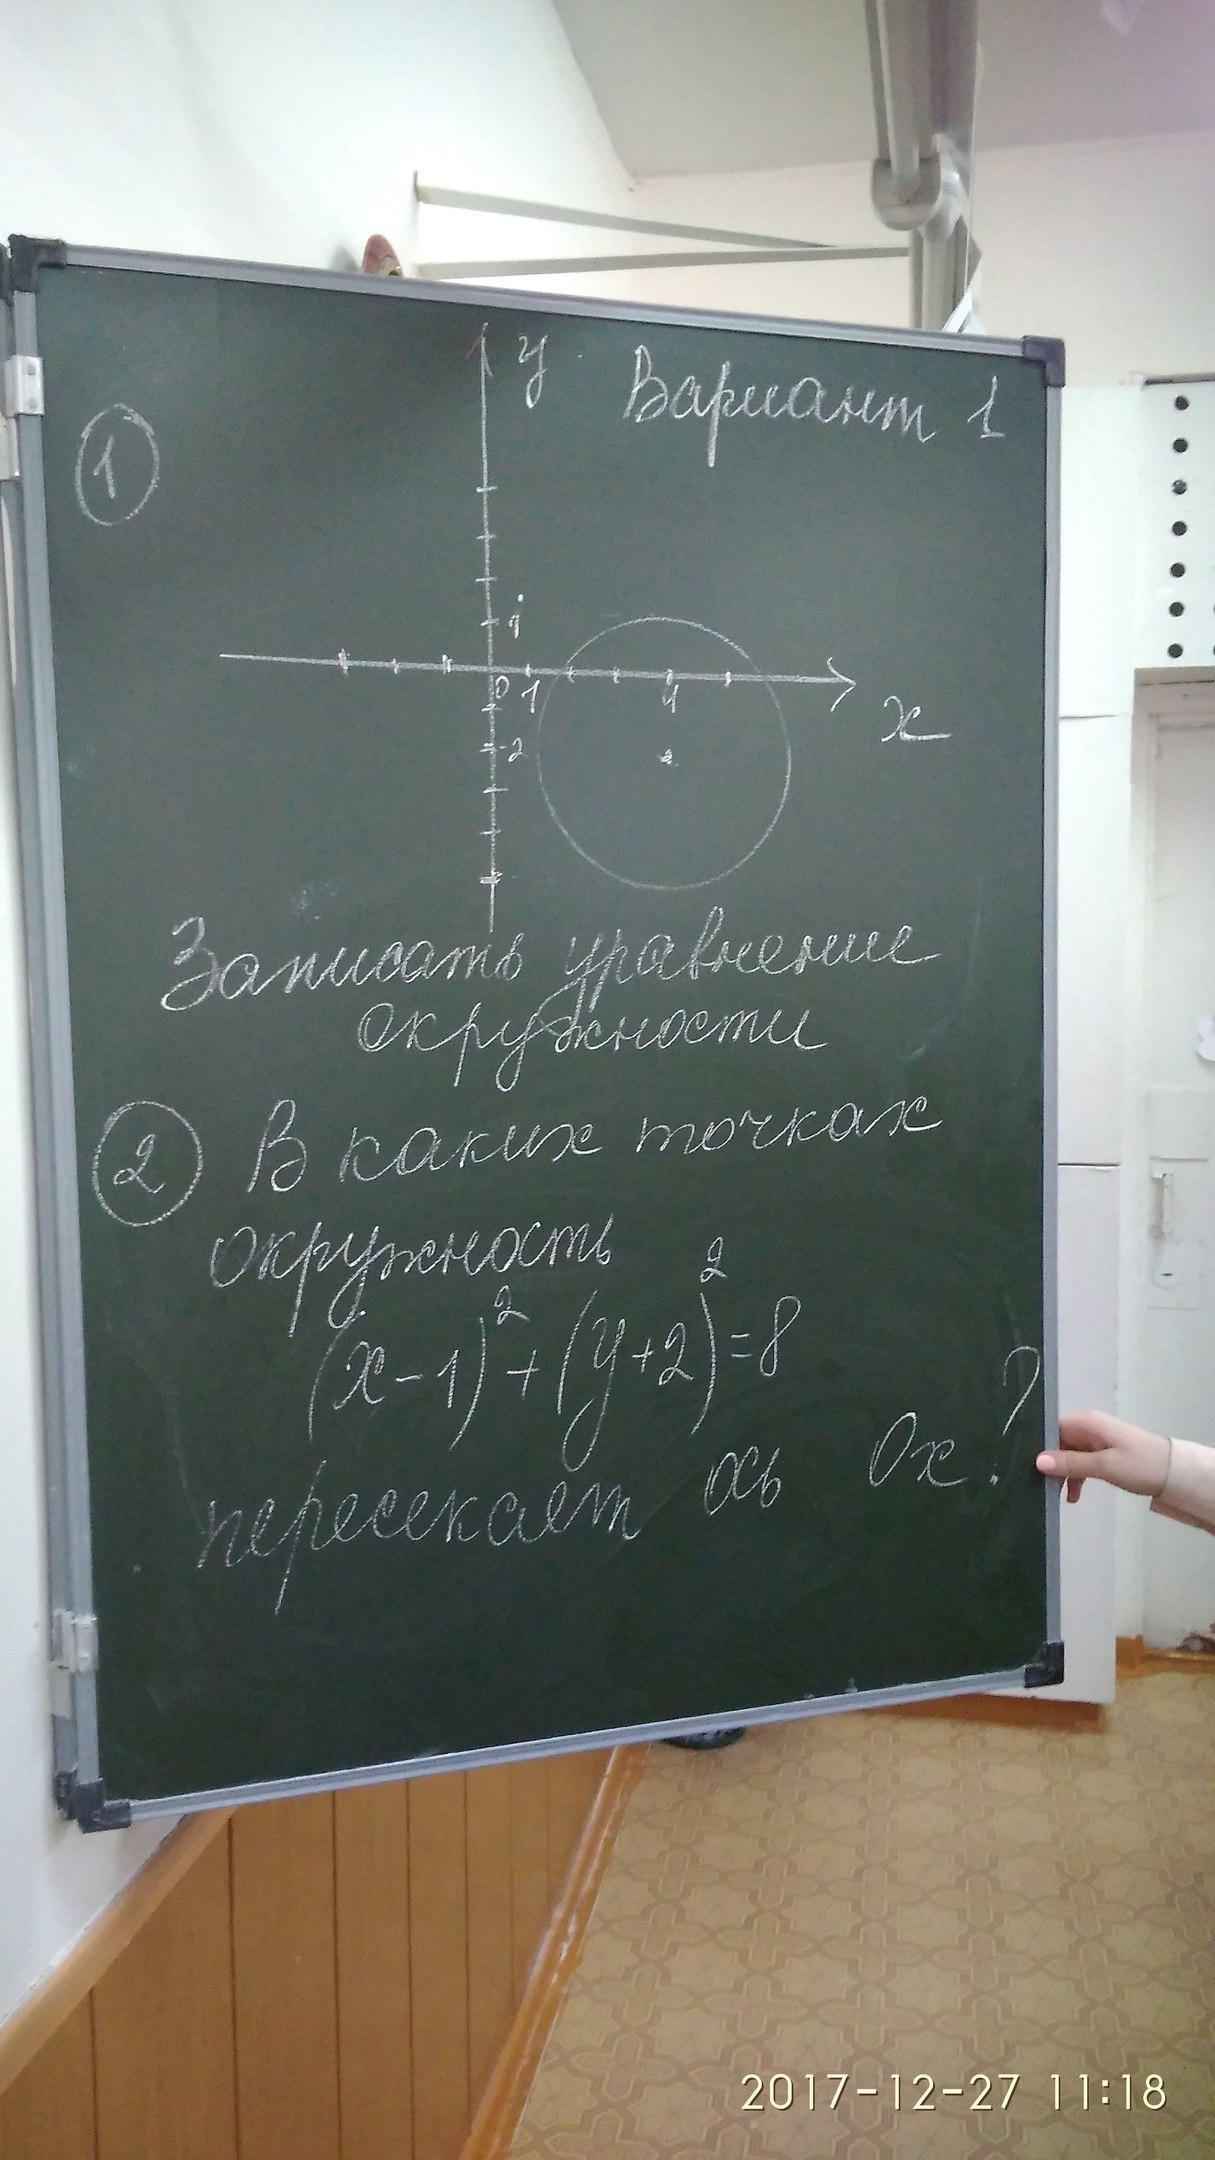 Вариант 1
1
у
1
0 1 4
х
-2
Записать уравнение
окружности
2 В каких точках
окружность
(х-1)²+(у+2)²=8
пересекает ось Ох?
2017-12-27 11:18